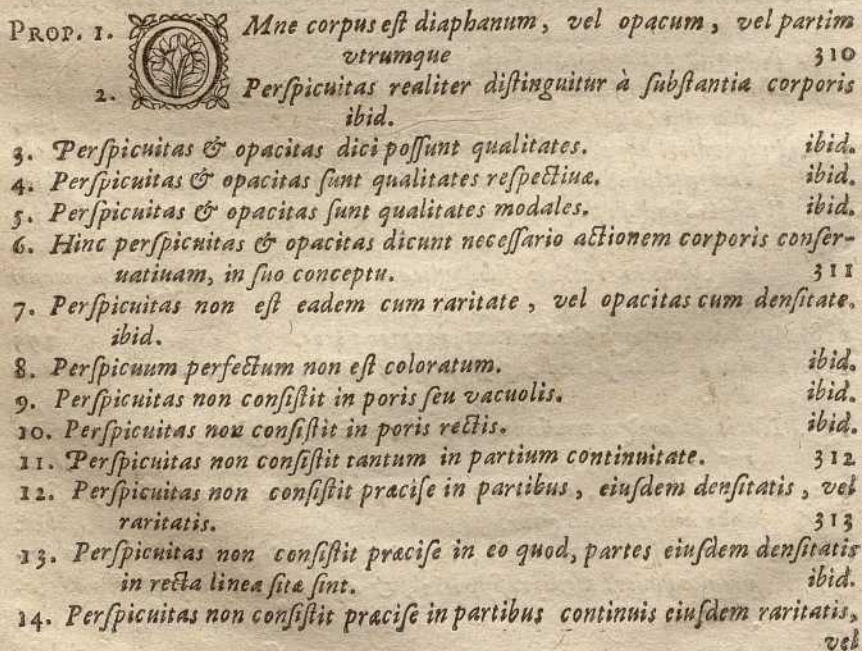 PROP. 1. OMne corpus eſt diaphanum, vel opacum, vel partim
vtrumque 310
2. Perſpicuitas realiter diſtinguitur à ſubſtantia corporis
ibid.
3. Perſpicuitas & opacitas dici poſſunt qualitates. ibid.
4. Perſpicuitas & opacitas ſunt qualitates reſpectiuæ. ibid.
5. Perſpicuitas & opacitas ſunt qualitates modales. ibid.
6. Hinc perſpicuitas & opacitas dicunt neceſſario actionem corporis conſer-
uatiuam, in ſuo conceptu. 311
7. Perſpicuitas non eſt eadem cum raritate, vel opacitas cum denſitate.
ibid.
8. Perſpicuum perfectum non eſt coloratum. ibid.
9. Perſpicuitas non conſiſtit in poris ſeu vacuolis. ibid.
10. Perſpicuitas non conſiſtit in poris rectis. ibid.
11. Perſpicuitas non conſiſtit tantum in partium continuitate. 312
12. Perſpicuitas non conſiſtit præciſe in partibus, eiuſdem denſitatis, vel
raritatis. 313
13. Perſpicuitas non conſiſtit præciſe in eo quod, partes eiuſdem denſitatis
in recta linea ſitæ ſint. ibid.
14. Perſpicuitas non conſiſtit præciſe in partibus continuis eiuſdem raritatis,
vel